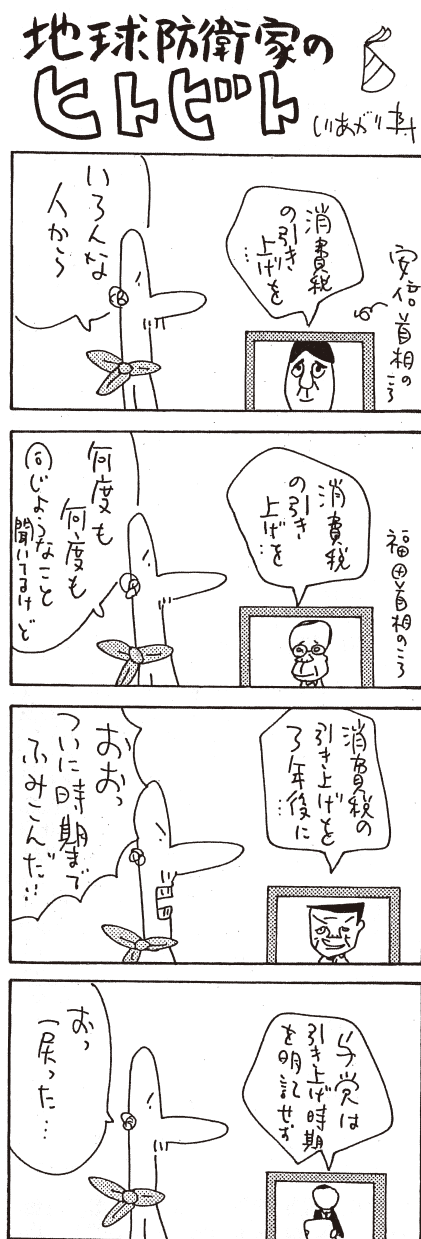 地球防衛家の
ヒトビト
しりあがり寿
安倍首相のころ
消費税
の引き
上げを
…
いろんな
人から
福田首相のころ
消費税
の引き
上げを…
何度も
何度も
同じようなこと
聞いてるけど
消費税の
引き上げを
3年後に
…
おおっ
ついに時期まで
ふみこんだ…
与党は
引き上げ時期
を明記せず
おっ
戻った…